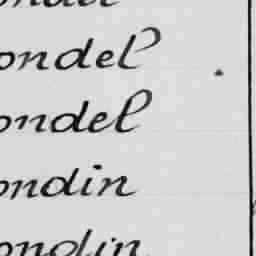 ondel
ondel
ondin
ondin